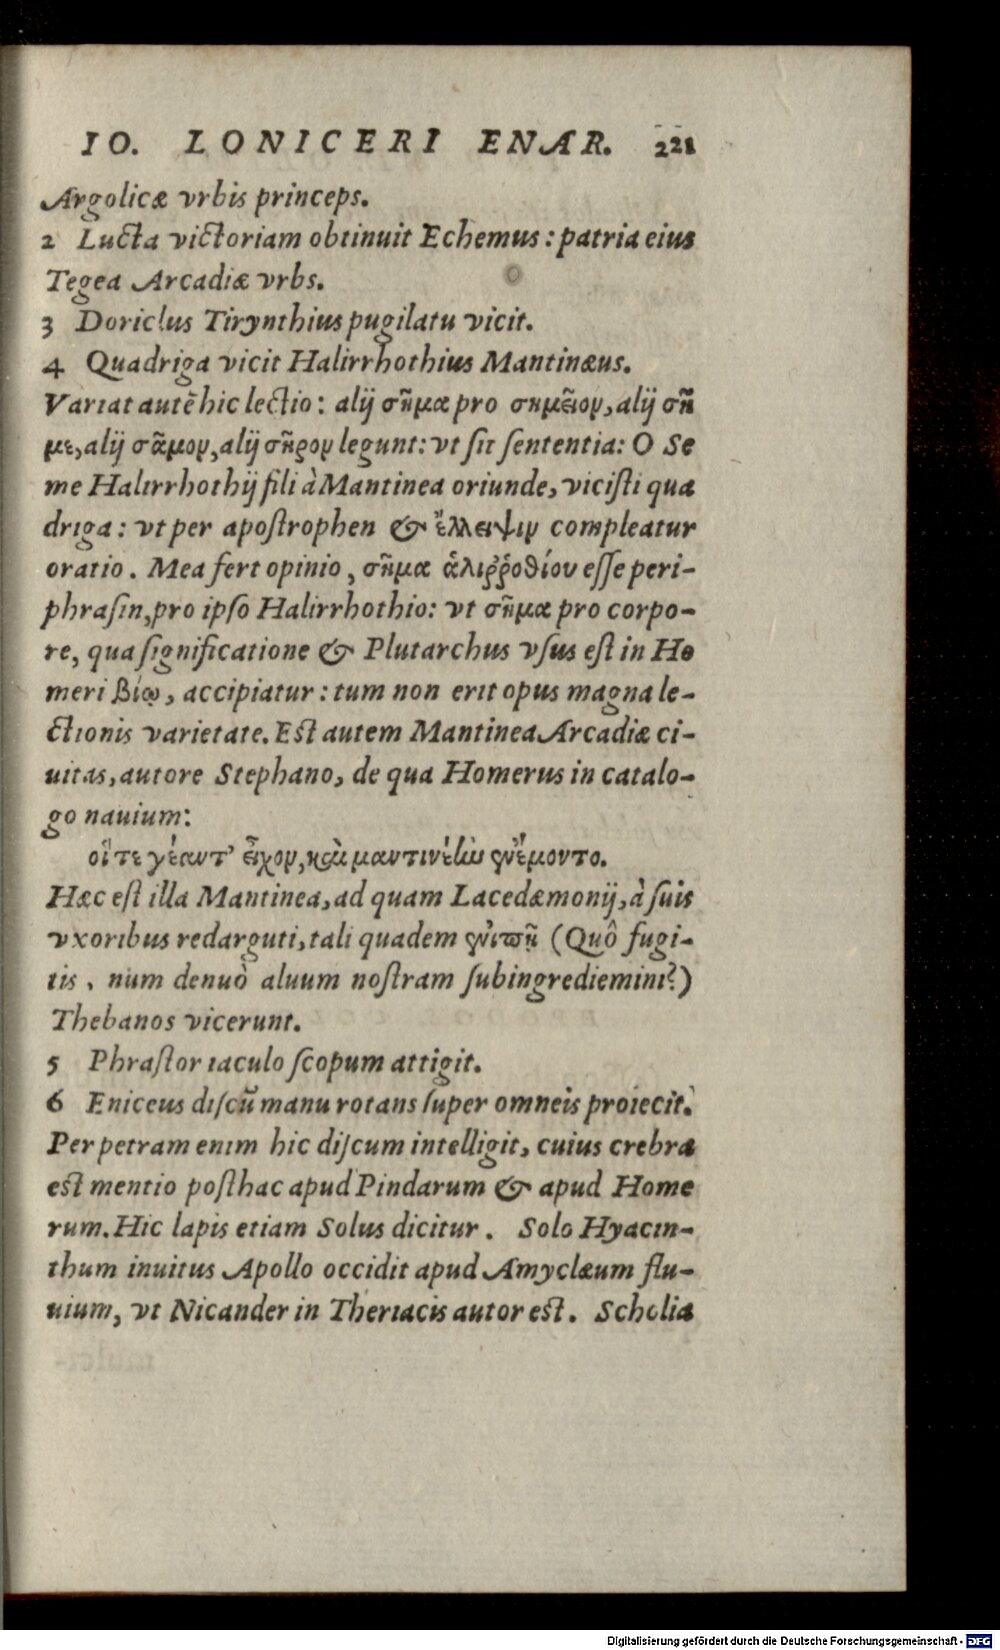 IO. LONICERI ENAR. 221
Argolicæ vrbis princeps.
2 Lucta victoriam obtinuit Echemus: patria eius
Tegea Arcadiæ vrbs.
3 Doriclus Tirynthius pugilatu vicit.
4 Quadriga vicit Halirrhothius Mantinæus.
Variat autē hic lectio: alij σῆμα pro σημεῖον, alij σῆ
με, alij σᾶμον, alij σῆρον legunt: vt sit sententia: O Se
me Halirrhothij fili à Mantinea oriunde, vicisti qua
driga: vt per apostrophen & ἔλλειψιν compleatur
oratio. Mea fert opinio, σῆμα ἁλιῤῥοθίου esse peri-
phrasin, pro ipso Halirrhothio: vt σῆμα pro corpo-
re, qua significatione & Plutarchus vsus est in Ho
meri βίῳ, accipiatur: tum non erit opus magna le-
ctionis varietate. Est autem Mantinea Arcadiæ ci-
uitas, autore Stephano, de qua Homerus in catalo-
go nauium:
οἵ τε γέαντ' εἶχον, καὶ μαντινέὼ ἐνέμοντο.
Hæc est illa Mantinea, ad quam Lacedæmonij, à suis
vxoribus redarguti, tali quadem ἐνιπῇ (Quô fugi-
tis, num denuò aluum nostram subingrediemini?)
Thebanos vicerunt.
5 Phrastor iaculo scopum attigit.
6 Eniceus discū manu rotans super omneis proiecit.
Per petram enim hic discum intelligit, cuius crebra
est mentio posthac apud Pindarum & apud Home
rum. Hic lapis etiam Solus dicitur. Solo Hyacin-
thum inuitus Apollo occidit apud Amyclæum flu-
uium, vt Nicander in Theriacis autor est. Scholia
Digitalisierung gefördert durch die Deutsche Forschungsgemeinschaft - DFG